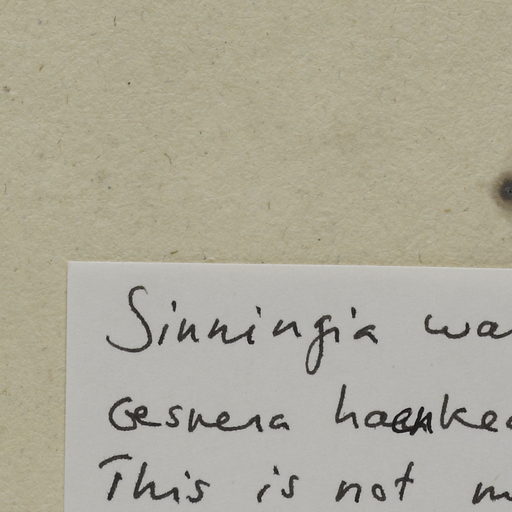 Sinningia wa
Gesnera haenke
This is not m